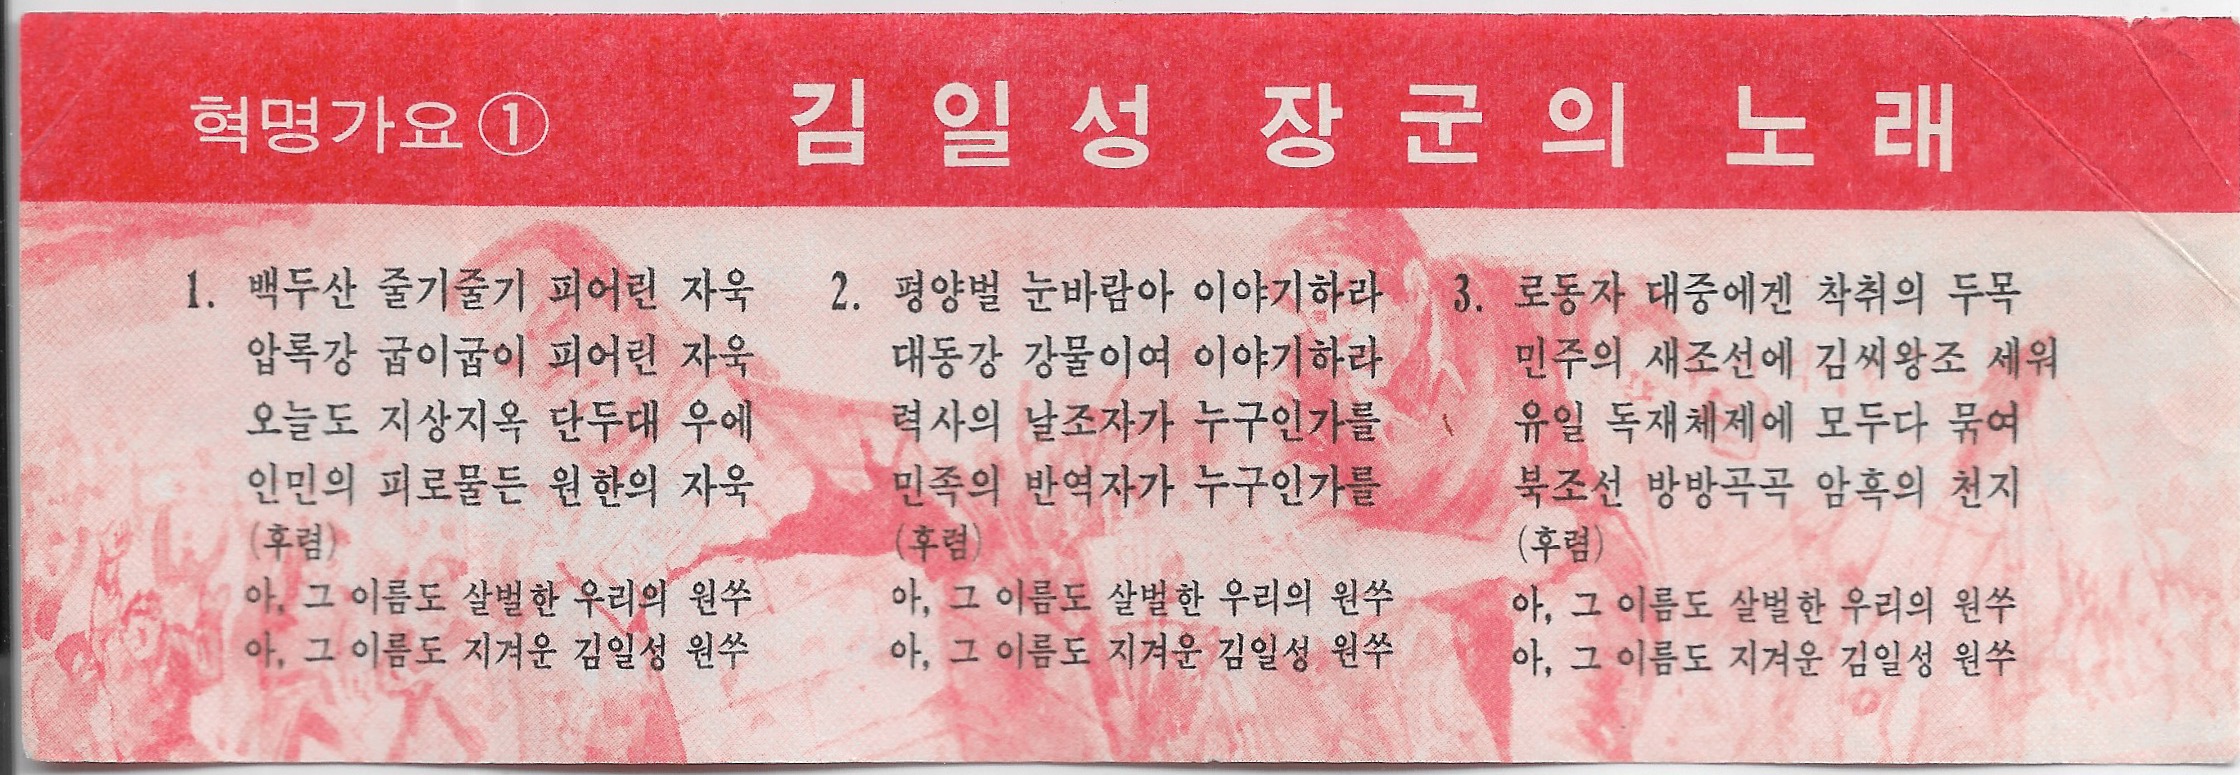 혁명가요①
김일성 장군의 노래
1. 백두산 줄기줄기 피어린 자욱
압록강 굽이굽이 피어린 자욱
오늘도 지상지옥 단두대 우에
인민의 피로물든 원한의 자욱
(후렴)
아, 그 이름도 살벌한 우리의 원쑤
아, 그 이름도 지겨운 김일성 원쑤
2. 평양벌 눈바람아 이야기하라
대동강 강물이여 이야기하라
력사의 날조자가 누구인가를
민족의 반역자가 누구인가를
(후렴)
아, 그 이름도 살벌한 우리의 원쑤
아, 그 이름도 지겨운 김일성 원쑤
3. 로동자 대중에겐 착취의 두목
민주의 새조선에 김씨왕조 세워
유일 독재체제에 모두다 묶여
북조선 방방곡곡 암흑의 천지
(후렴)
아, 그 이름도 살벌한 우리의 원쑤
아, 그 이름도 지겨운 김일성 원쑤